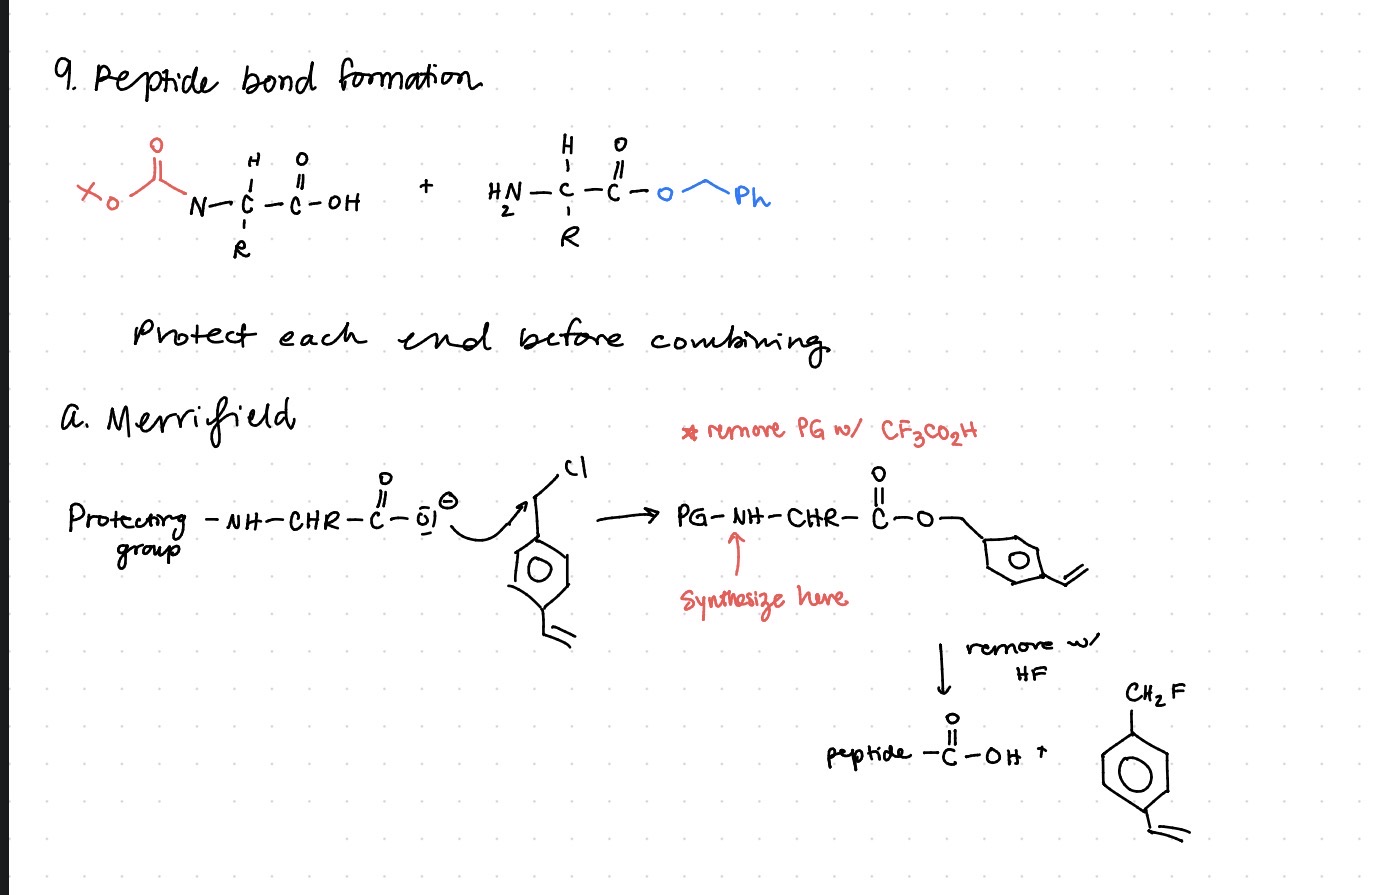 9. Peptide bond formation
O H O H O
O N-C-C-OH + H2N-C-C-O Ph
R R
Protect each end before combining
a. Merrifield
* remove PG w/ CF3CO2H
Protecting group -NH-CHR-C-O⊖ O Cl → PG-NH-CHR-C-O O
Synthesize here
remove w/ HF
CH2F
peptide -C-OH + O